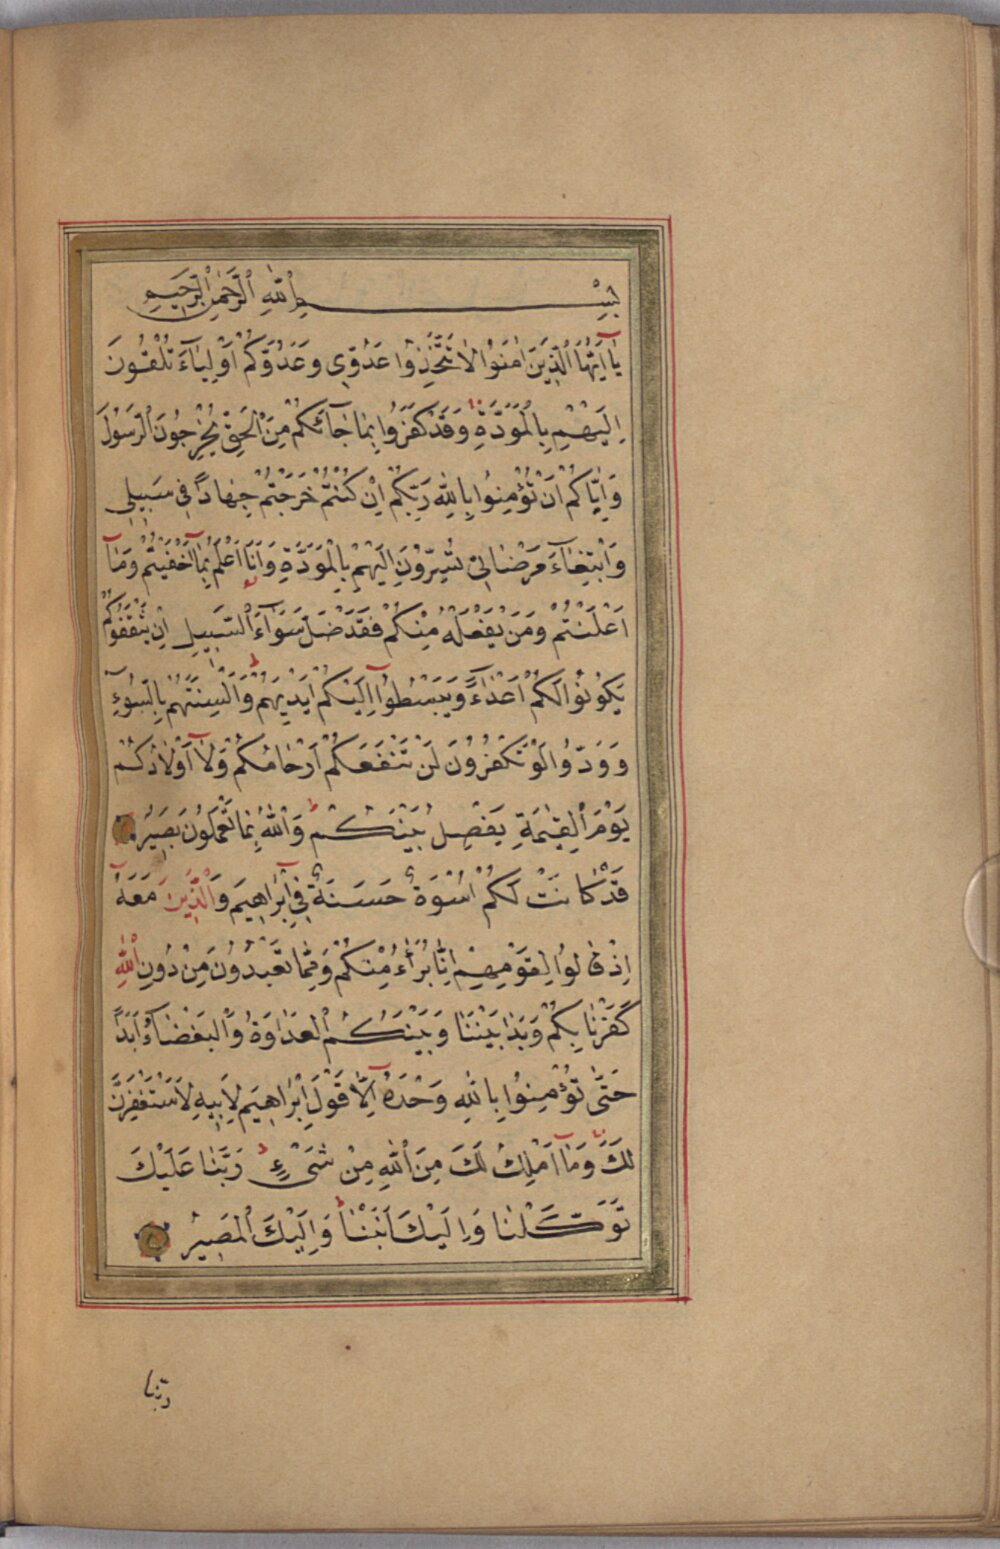 بِسْمِ اللّٰهِ الرَّحْمٰنِ الرَّحِيمِ
يَآ اَيُّهَا الَّذِينَ اٰمَنُوا لَا تَتَّخِذُوا عَدُوِّى وَعَدُوَّكُمْ اَوْلِيَآءَ تُلْقُونَ
اِلَيْهِمْ بِالْمَوَدَّةِ وَقَدْ كَفَرُوا بِمَا جَآءَكُمْ مِنَ الْحَقِّ يُخْرِجُونَ الرَّسُولَ
وَاِيَّاكُمْ اَنْ تُؤْمِنُوا بِاللّٰهِ رَبِّكُمْ اِنْ كُنْتُمْ خَرَجْتُمْ جِهَادًا فِى سَبِيلِى
وَابْتِغَآءَ مَرْضَاتِى تُسِرُّونَ اِلَيْهِمْ بِالْمَوَدَّةِ وَاَنَا اَعْلَمُ بِمَآ اَخْفَيْتُمْ وَمَآ
اَعْلَنْتُمْ وَمَنْ يَفْعَلْهُ مِنْكُمْ فَقَدْ ضَلَّ سَوَآءَ السَّبِيلِ اِنْ يَثْقَفُوكُمْ
يَكُونُوا لَكُمْ اَعْدَآءً وَيَبْسُطُوٓا اِلَيْكُمْ اَيْدِيَهُمْ وَاَلْسِنَتَهُمْ بِالسُّوٓءِ
وَوَدُّوا لَوْ تَكْفُرُونَ لَنْ تَنْفَعَكُمْ اَرْحَامُكُمْ وَلَآ اَوْلَادُكُمْ
يَوْمَ الْقِيٰمَةِ يَفْصِلُ بَيْنَكُمْ وَاللّٰهُ بِمَا تَعْمَلُونَ بَصِيرٌ
قَدْ كَانَتْ لَكُمْ اُسْوَةٌ حَسَنَةٌ فِىٓ اِبْرَاهِيمَ وَالَّذِينَ مَعَهُ
اِذْ قَالُوا لِقَوْمِهِمْ اِنَّا بُرَءٰٓؤُا مِنْكُمْ وَمِمَّا تَعْبُدُونَ مِنْ دُونِ اللّٰهِ
كَفَرْنَا بِكُمْ وَبَدَا بَيْنَنَا وَبَيْنَكُمُ الْعَدَاوَةُ وَالْبَغْضَآءُ اَبَدًا
حَتّٰى تُؤْمِنُوا بِاللّٰهِ وَحْدَهُٓ اِلَّا قَوْلَ اِبْرَاهِيمَ لِاَبِيهِ لَاَسْتَغْفِرَنَّ
لَكَ وَمَآ اَمْلِكُ لَكَ مِنَ اللّٰهِ مِنْ شَىْءٍ رَبَّنَا عَلَيْكَ
تَوَكَّلْنَا وَاِلَيْكَ اَنَبْنَا وَاِلَيْكَ الْمَصِيرُ
ربنا